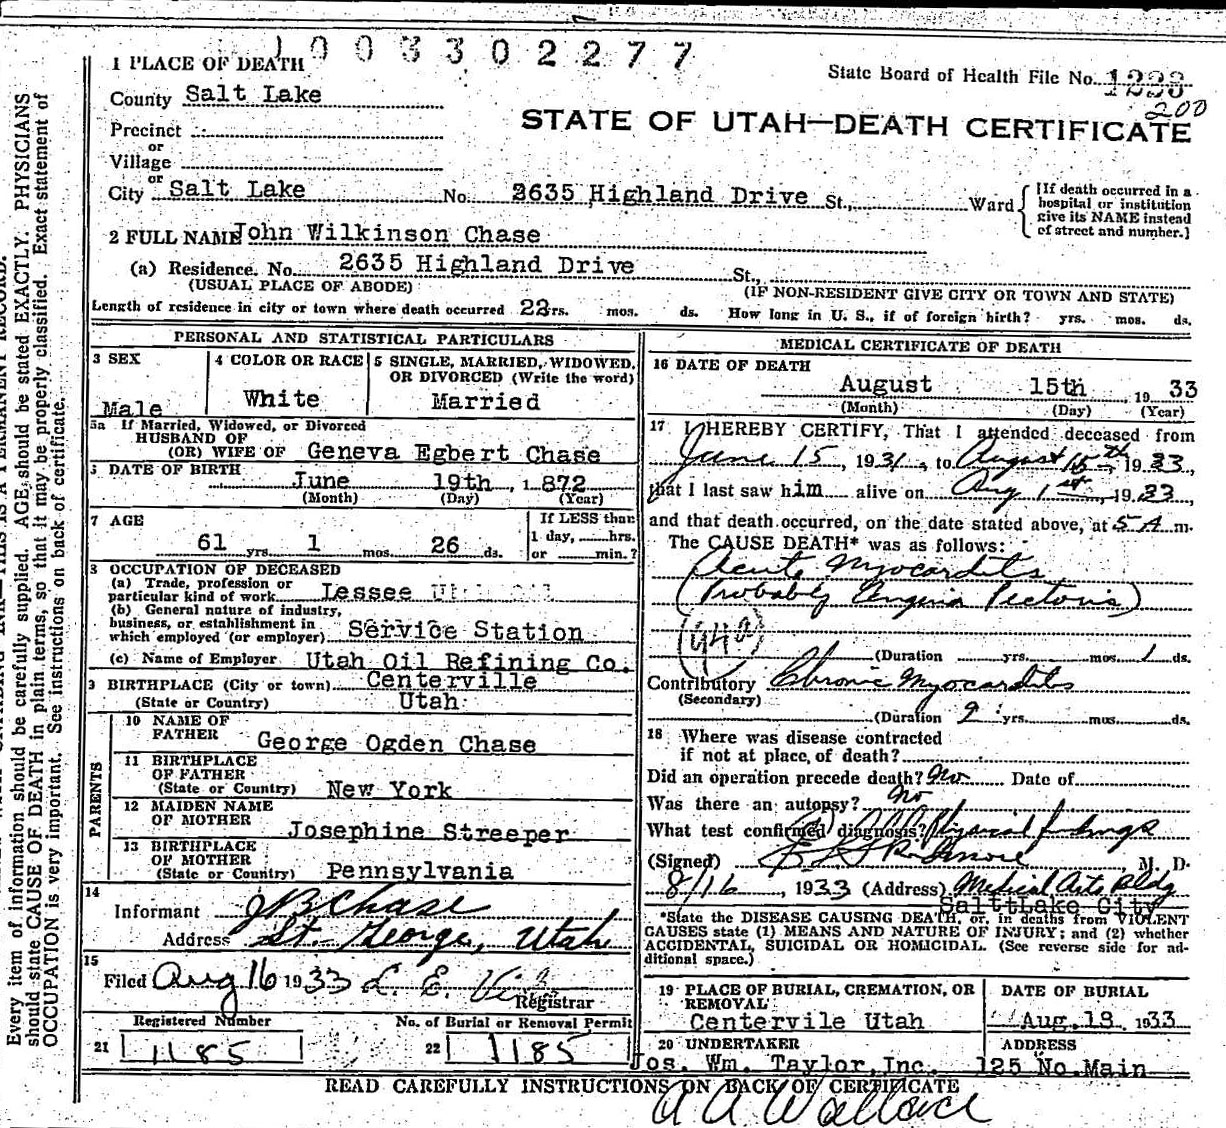 1003302277
1 PLACE OF DEATH
State Board of Health File No.
County Salt Lake
200
STATE OF UTAH—DEATH CERTIFICATE
Precinct
or
Village
or
City Salt Lake No. 2635 Highland Drive St., Ward
[If death occurred in a
hospital or institution
give its NAME instead
of street and number.]
2 FULL NAME John Wilkinson Chase
(a) Residence. No. 2635 Highland Drive St.,
(USUAL PLACE OF ABODE)
(IF NON-RESIDENT GIVE CITY OR TOWN AND STATE)
Length of residence in city or town where death occurred rs. mos. ds. How long in U. S., if of foreign birth? yrs. mos. ds.
PERSONAL AND STATISTICAL PARTICULARS
3 SEX
Male
4 COLOR OR RACE
White
5 SINGLE, MARRIED, WIDOWED,
OR DIVORCED (Write the word)
Married
5a If Married, Widowed, or Divorced
HUSBAND OF
(OR) WIFE OF Geneva Egbert Chase
DATE OF BIRTH
June 19th, 1872
(Month) (Day) (Year)
7 AGE
61 yrs. 1 mos. 26 ds.
If LESS than
1 day, hrs.
or min.?
8 OCCUPATION OF DECEASED
(a) Trade, profession or
particular kind of work Lessee
(b) General nature of industry,
business, or establishment in
which employed (or employer) Service Station
(c) Name of Employer Utah Oil Refining Co.
9 BIRTHPLACE (City or town) Centerville
(State or Country) Utah
PARENTS
10 NAME OF
FATHER
George Ogden Chase
11 BIRTHPLACE
OF FATHER
(State or Country) New York
12 MAIDEN NAME
OF MOTHER
Josephine Streeper
13 BIRTHPLACE
OF MOTHER
(State or Country) Pennsylvania
14
Informant J B Chase
Address St. George, Utah
15
Filed Aug 16 1933 L. E.
Registrar
Registered Number
21 1185
No. of Burial or Removal Permit
22 1185
MEDICAL CERTIFICATE OF DEATH
16 DATE OF DEATH
August 15th, 1933
(Month) (Day) (Year)
17 I HEREBY CERTIFY, That I attended deceased from
June 15, 1931, to August 15th, 1933,
that I last saw him alive on Aug 1st, 1933,
and that death occurred, on the date stated above, at 5 A m.
The CAUSE DEATH* was as follows:
Acute Myocarditis
(Probably Angina Pectoris)
(94a)
(Duration yrs. mos. 1 ds.
Contributory Chronic Myocarditis
(Secondary)
(Duration 2 yrs. mos. ds.
18 Where was disease contracted
if not at place of death?
Did an operation precede death? No Date of
Was there an autopsy? no
What test confirmed diagnosis? Physical findings
(Signed) M. D.
8/16, 1933 (Address) Medical Arts Bldg
Salt Lake City
*State the DISEASE CAUSING DEATH, or, in deaths from VIOLENT
CAUSES state (1) MEANS AND NATURE OF INJURY; and (2) whether
ACCIDENTAL, SUICIDAL OR HOMICIDAL. (See reverse side for ad-
ditional space.)
19 PLACE OF BURIAL, CREMATION, OR
REMOVAL
Centervile Utah
DATE OF BURIAL
Aug. 18, 1933
20 UNDERTAKER
Jos. Wm. Taylor, Inc.
ADDRESS
125 No. Main
READ CAREFULLY INSTRUCTIONS ON BACK OF CERTIFICATE
A A Wallace
Every item of information should be carefully supplied. AGE should be stated EXACTLY. PHYSICIANS
should state CAUSE OF DEATH in plain terms, so that it may be properly classified. Exact statement of
OCCUPATION is very important. See instructions on back of certificate.